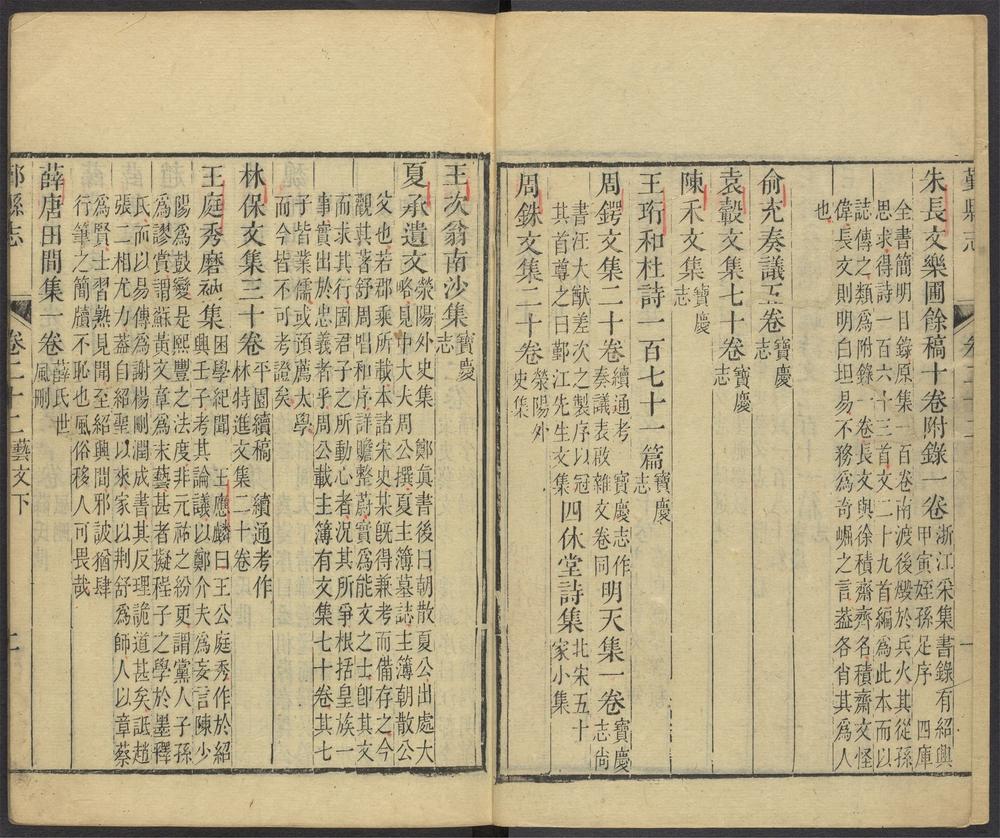 鄞縣志
朱長文樂圃餘稿十卷附錄一卷 浙江采集書錄有紹興
甲寅姪孫足序 四庫
全書簡明目錄原集一百卷南渡後燬於兵火其從孫
思求得詩一百六十三首文二十九首編爲此本而以
誌傳之類爲附錄一卷長文與徐積齋齊名積齋文怪
偉長文則明白坦易不務爲奇崛之言葢各肖其爲人
也
俞充奏議五卷 寶慶
志
袁轂文集七十卷 寶慶
志
陳禾文集 寶慶
志
王珩和杜詩一百七十一篇 寶慶
志
周鍔文集二十卷 續通考 寶慶志作
奏議表啟雜文卷同 明天集一卷 寶慶
志尙
書汪大猷差次之製序以冠
其首尊之曰鄞江先生文集 四休堂詩集 北宋五十
家小集
周銖文集二十卷 滎陽外
史集
王次翁南沙集 寶慶
志
夏承遺文 滎陽外史集 鄭眞書後曰朝散夏公出處大
略見中大夫周公撰夏主簿墓誌主簿朝散公
父也若郡乘所載本諸宋史某旣得兼考而備存之今
觀其著舒周唱和序詳贍整蔚實爲能文之士卽其文
而求其行固君子之所動心者況其所爭根括皇族一
事實出於忠義者乎周公載主簿有文集七十卷其七
子皆業儒或預薦太學
而今皆不可考證矣
林保文集三十卷 平園續稿 續通考作
林特進文集二十卷
王庭秀磨衲集 困學紀聞 王應麟曰王公庭秀作於紹
興壬子考其論議以鄭介夫爲妄言陳少
陽爲鼓變是熙豐之法度非元祐之紛更謂黨人子孫
爲謬賞謂蘇黃文章爲末藝甚者擬程子之學於墨釋
氏而以易傳爲謝楊剛潤成書其反理詭道甚矣詆趙
張二相尤力葢自紹聖以來家以荆舒爲師人以章蔡
爲賢士習熟見聞至紹興間邪詖猶肆
行筆之簡牘不恥也風俗移人可畏哉
薛唐田間集一卷 薛氏世
風刪
鄞縣志
卷二十二 藝文下